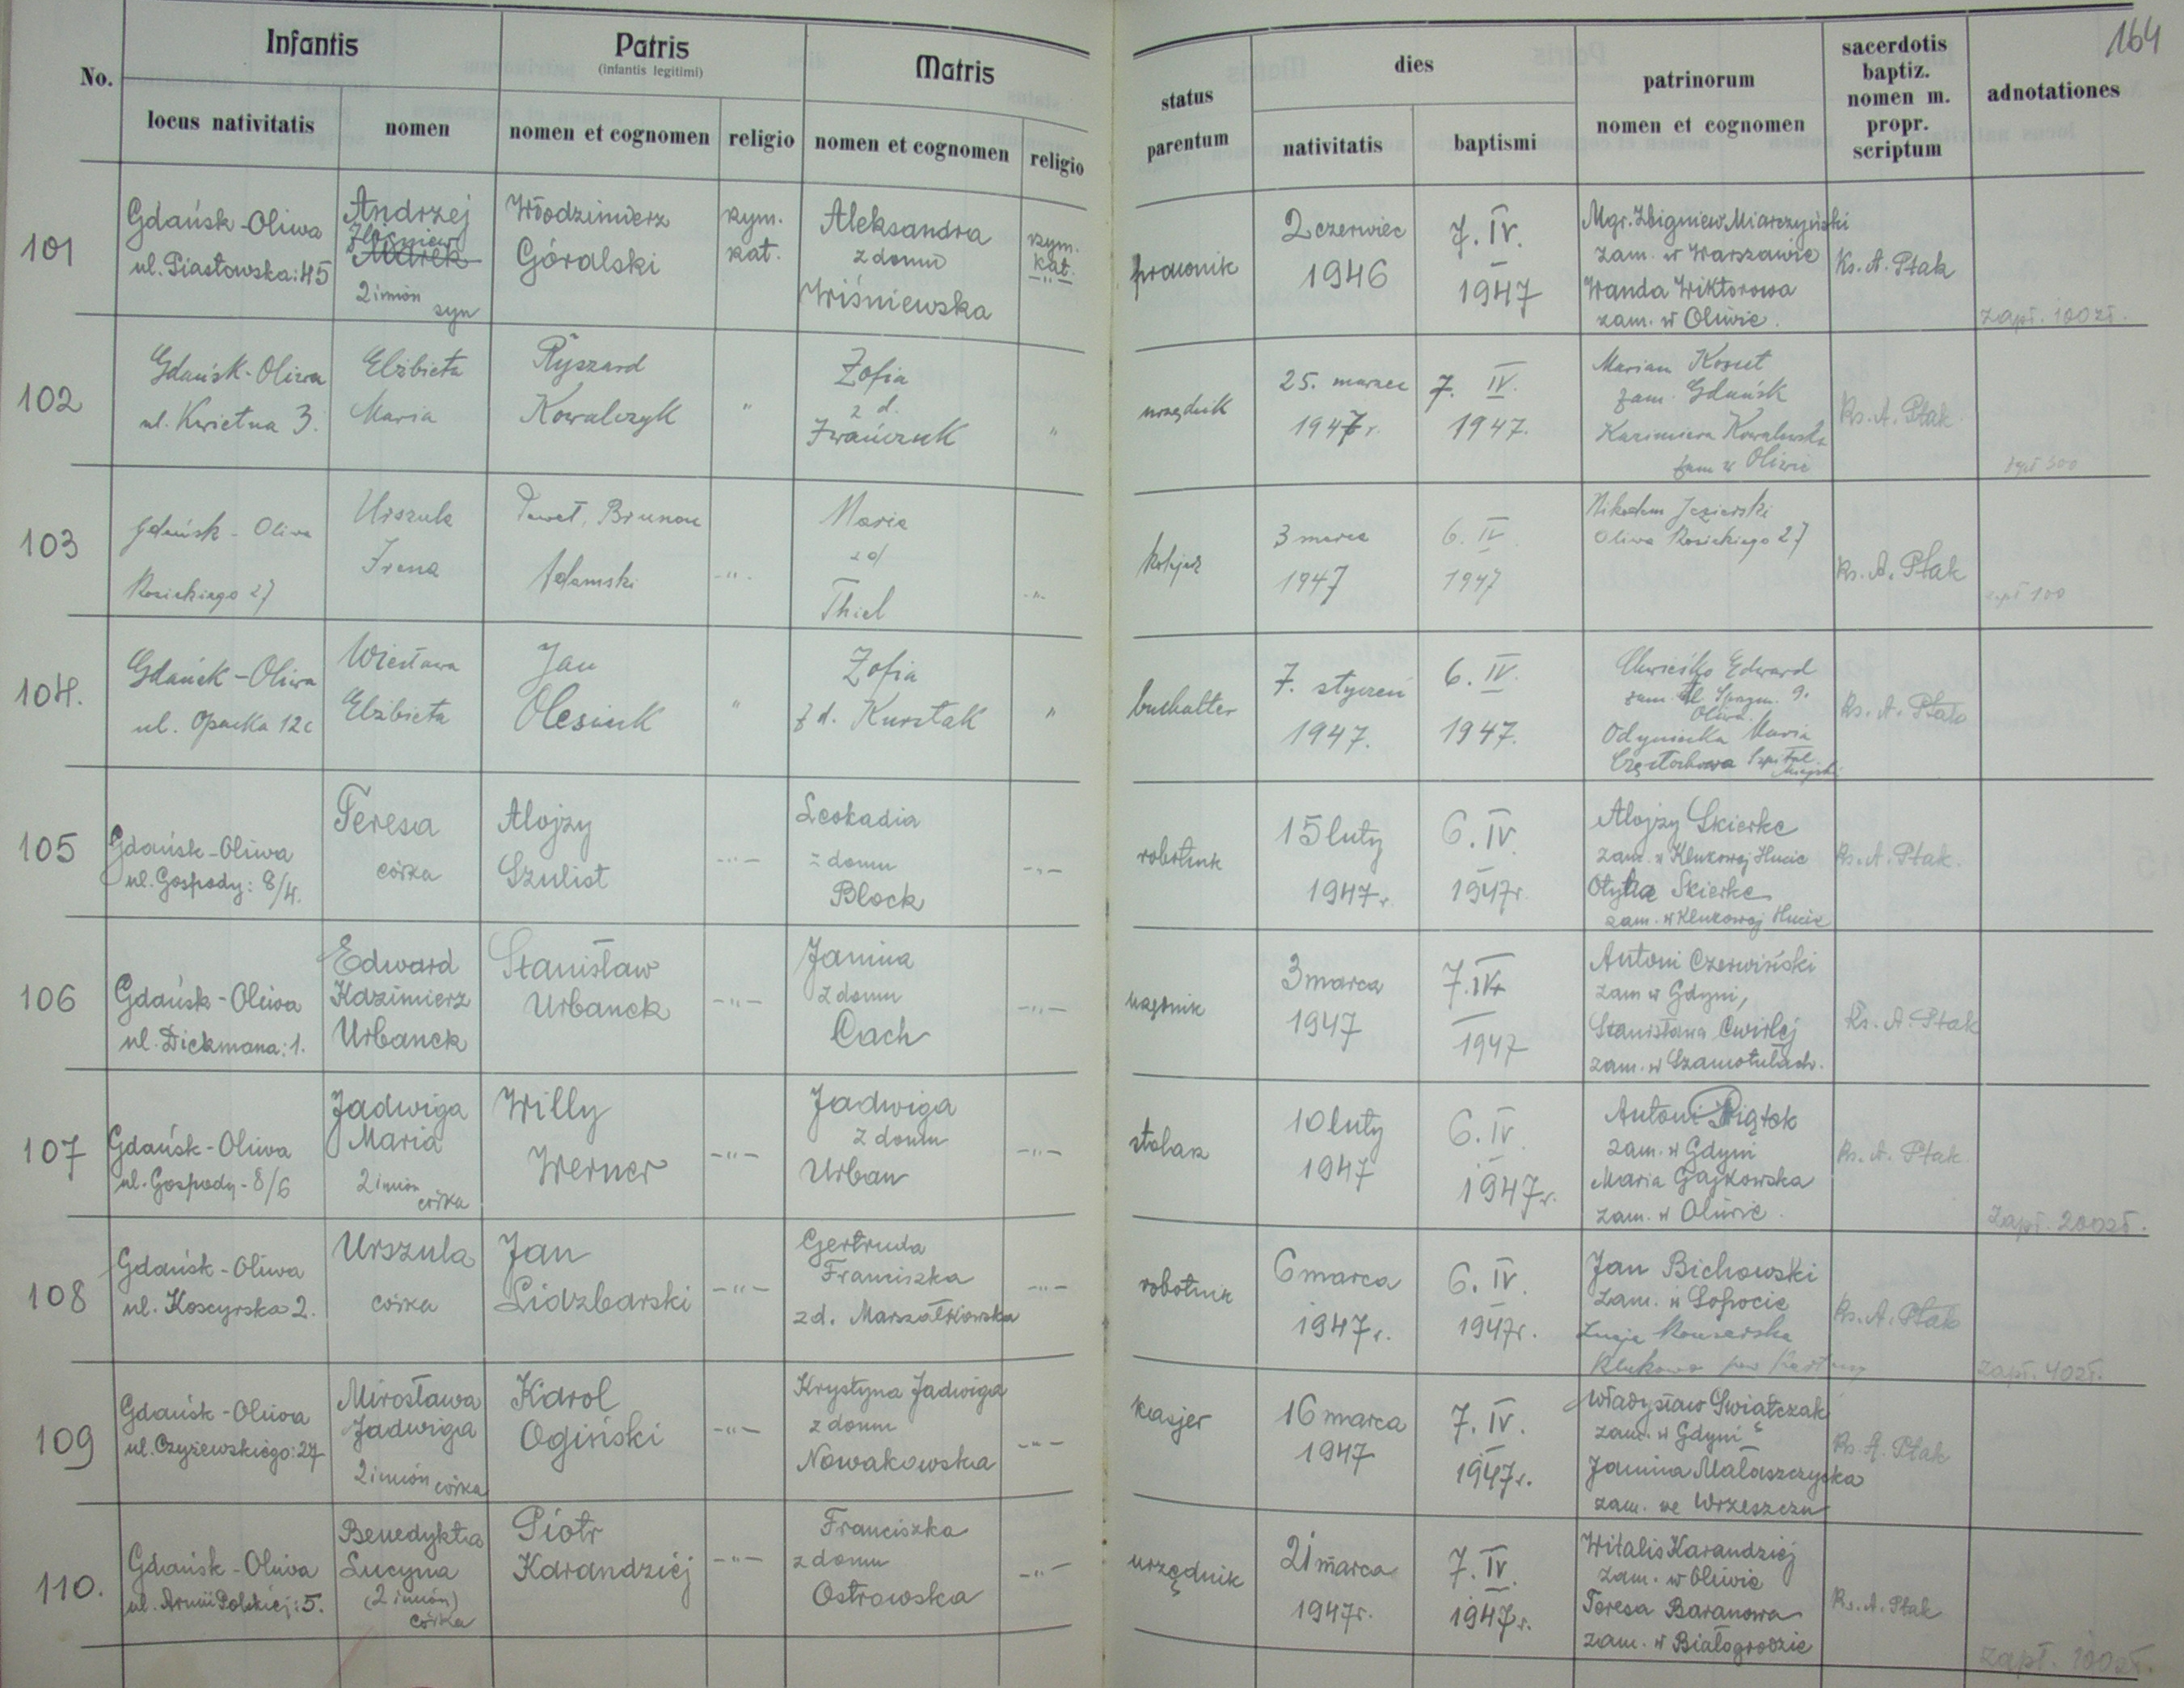 164
No.
Infantis
Patris
(infantis legitimi)
Matris
status
parentum
dies
patrinorum
nomen et cognomen
sacerdotis
baptiz.
nomen m.
propr.
scriptum
adnotationes
locus nativitatis
nomen
nomen et cognomen
religio
nomen et cognomen
religio
nativitatis
baptismi
101
Gdańsk-Oliwa
ul. Piastowska: 45
Andrzej
Zbigniew
Marek
2 imion
syn
Włodzimierz
Góralski
rzym.
kat.
Aleksandra
z domu
Wiśniewska
rzym.
kat.
prawnik
2 czerwiec
1946
7. IV.
1947
Mgr. Zbigniew Miarczyński
zam. w Warszawie
Wanda Wiktorowa
zam. w Oliwie.
Ks. A. Ptak
zapł. 100 zł.
102
Gdańsk-Oliwa
ul. Kwietna 3.
Elżbieta
Maria
Ryszard
Kowalczyk
"
Zofia
z d.
Iwańczuk
"
urzędnik
25. marzec
1947 r.
7. IV.
1947.
Marian Kosut
zam. Gdańsk
Kazimiera Kowalewska
zam w Oliwie
Ks. A. Ptak
zapł 300
103
Gdańsk - Oliwa
27
Urszula
Irena
Paweł, Brunon
Adamski
-"-
Maria
z d
Thiel
-"-
kolejarz
3 marca
1947
6. IV.
1947
Nikodem Jezierski
Oliwa 27
Ks. A. Ptak
zapł 100
104.
Gdańsk-Oliwa
ul. Opacka 12c
Wiesława
Elżbieta
Jan
Olesiuk
"
Zofia
z d. Kurstak
"
buchalter
7. styczeń
1947.
6. IV.
1947.
Edward
zam. 9.
Oliwa
Maria
Częstochowa Szpital
Miejski
Ks. A. Ptak
105
Gdańsk-Oliwa
ul. Gospody: 8/4.
Teresa
córka
Alojzy
Szulist
-"-
Leokadia
z domu
Block
-"-
robotnik
15 luty
1947 r.
6. IV.
1947 r.
Alojzy Skierke
zam. w Klukowej Hucie
Otylia Skierke
zam. w Klukowej Hucie
Ks. A. Ptak.
106
Gdańsk-Oliwa
ul. Dickmana: 1.
Edward
Kazimierz
Urbanek
Stanisław
Urbanek
-"-
Janina
z domu
Cach
-"-
3 marca
1947
7. IV.
1947
Antoni Czerwiński
zam w Gdyni,
Stanisława Cwirlej
zam. w Szamotułach.
Ks. A. Ptak
107
Gdańsk-Oliwa
ul. Gospody - 8/6
Jadwiga
Maria
2 imion
córka
Willy
Werner
-"-
Jadwiga
z domu
Urban
-"-
stolarz
10 luty
1947
6. IV.
1947 r.
Antoni Piątek
zam. w Gdyni
Maria Gajkowska
zam. w Oliwie.
Ks. A. Ptak.
zapł. 200 zł.
108
Gdańsk-Oliwa
ul. Koscyrska 2.
Urszula
córka
Jan
Lidzbarski
-"-
Gertruda
Franciszka
z d. Marszałkowska
-"-
robotnik
6 marca
1947 r.
6. IV.
1947 r.
Jan Bichowski
zam. w Sopocie
Łucja
Klukowo pow Kartuzy
Ks. A. Ptak
zapł. 40 zł.
109
Gdańsk-Oliwa
ul. Czyżewskiego: 27
Mirosława
Jadwiga
2 imion córka
Karol
Ogiński
-"-
Krystyna Jadwiga
z domu
Nowakowska
-"-
kasjer
16 marca
1947
7. IV.
1947 r.
Władysław Swiatczak
zam. w Gdyni
Janina Małaszczyska
zam. we Wrzeszczu
Ks. A. Ptak
110.
Gdańsk-Oliwa
ul. Armii Polskiej: 5.
Benedykta
Lucyna
(2 imion)
córka
Piotr
Karandziej
-"-
Franciszka
z domu
Ostrowska
-"-
urzędnik
21 marca
1947 r.
7. IV.
1947 r.
Witalis Karandziej
zam. w Oliwie
Teresa Baranowa
zam. w Białogrodzie
Ks. A. Ptak
zapł. 100 zł.